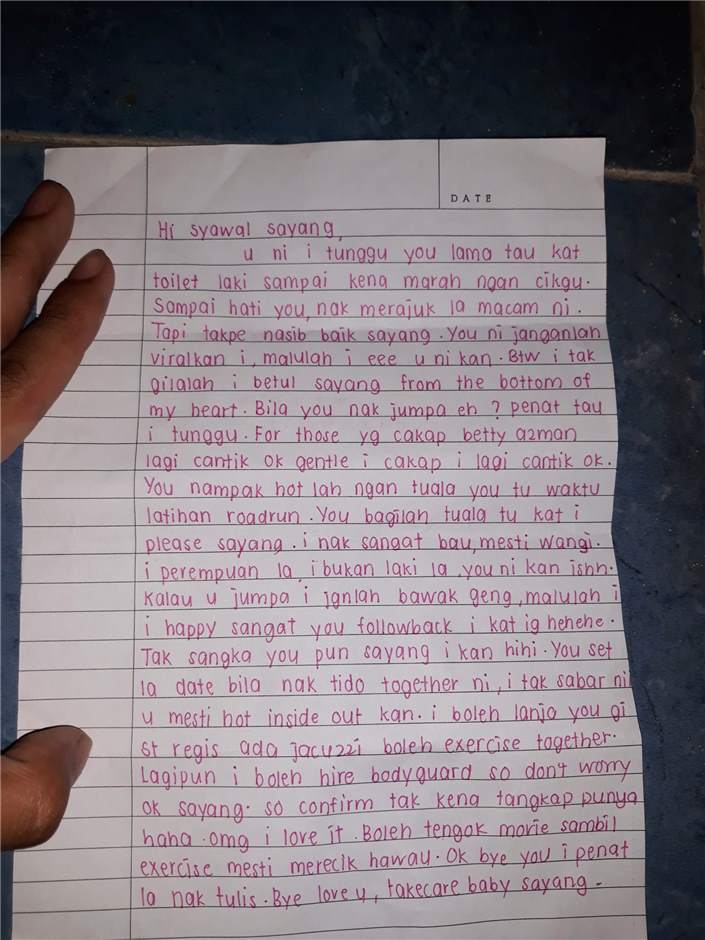 DATE
Hi syawal sayang,
u ni i tunggu you lama tau kat
toilet laki sampai kena marah ngan cikgu.
Sampai hati you, nak merajuk la macam ni.
Tapi takpe nasib baik sayang. You ni janganlah
viralkan i, malulah i eee u ni kan. Btw i tak
gilalah i betul sayang from the bottom of
my heart. Bila you nak jumpa eh? penat tau
i tunggu. For those yg cakap betty azman
lagi cantik ok gentle i cakap i lagi cantik ok.
You nampak hot lah ngan tuala you tu waktu
latihan roadrun. You bagilah tuala tu kat i
please sayang. i nak sangat bau, mesti wangi.
i perempuan la, i bukan laki la, you ni kan ishh.
Kalau u jumpa i jgnlah bawak geng, malulah i
i happy sangat you followback i kat ig hehehe.
Tak sangka you pun sayang i kan hihi. You set
la date bila nak tido together ni, i tak sabar ni
u mesti hot inside out kan. i boleh lanja you gi
st regis ada jacuzzi boleh exercise together.
Lagipun i boleh hire bodyguard so don't worry
ok sayang. so confirm tak kena tangkap punya
haha. omg i love it. Boleh tengok movie sambil
exercise mesti merecik hawau. Ok bye you i penat
la nak tulis. Bye love u, takecare baby sayang.